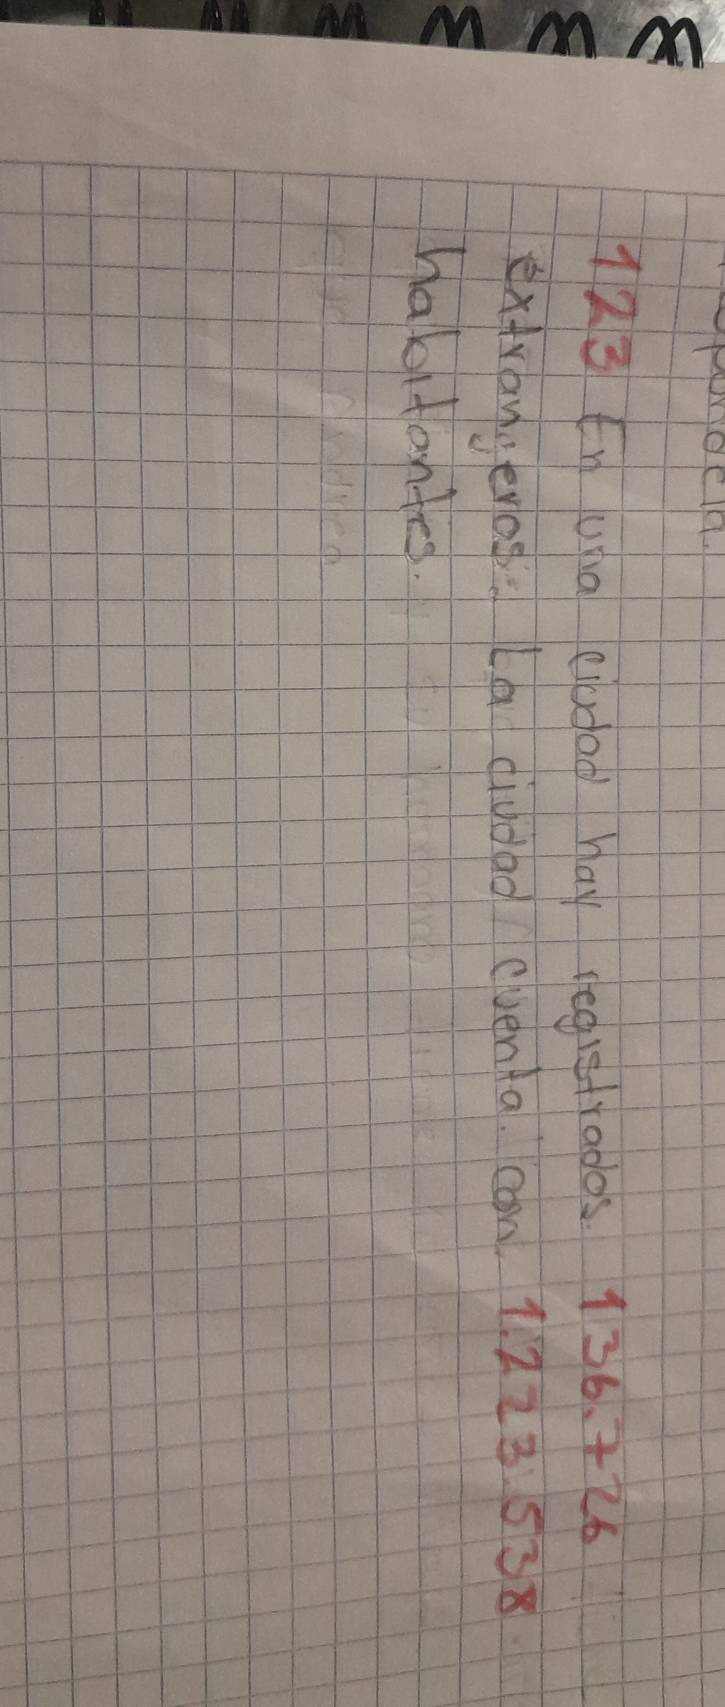 123 En una ciudad hay registrados. 136.726
extrangeros. La ciudad cuenta con 1.223.538
habitantes.